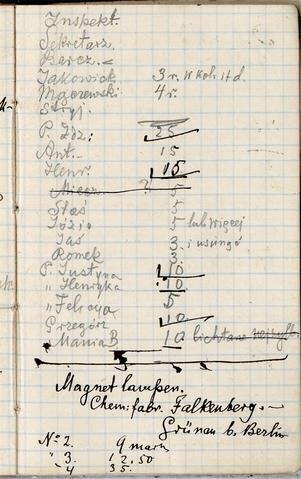 Inspekt.
Sekretarz.
Bercz.
Jakowick 3 r. W Kol. itd.
Maczewski 4 r.
Stryj
P. Jdz: 25
Ant. 15
Henr. 15
Miecz 5
Staś 5
Józio 5 lub więcej
Jaś 3.
Romek 3.
P. Justyna 10.
" Henryka 10.
" Felicya 5
Grzegórz 10
Mania B 10
Magnet lampen.
Chem. fabr. Falkenberg.—
Grünau b. Berlin
No 2. 9 mark
" 3. 12.50
" 4 35.